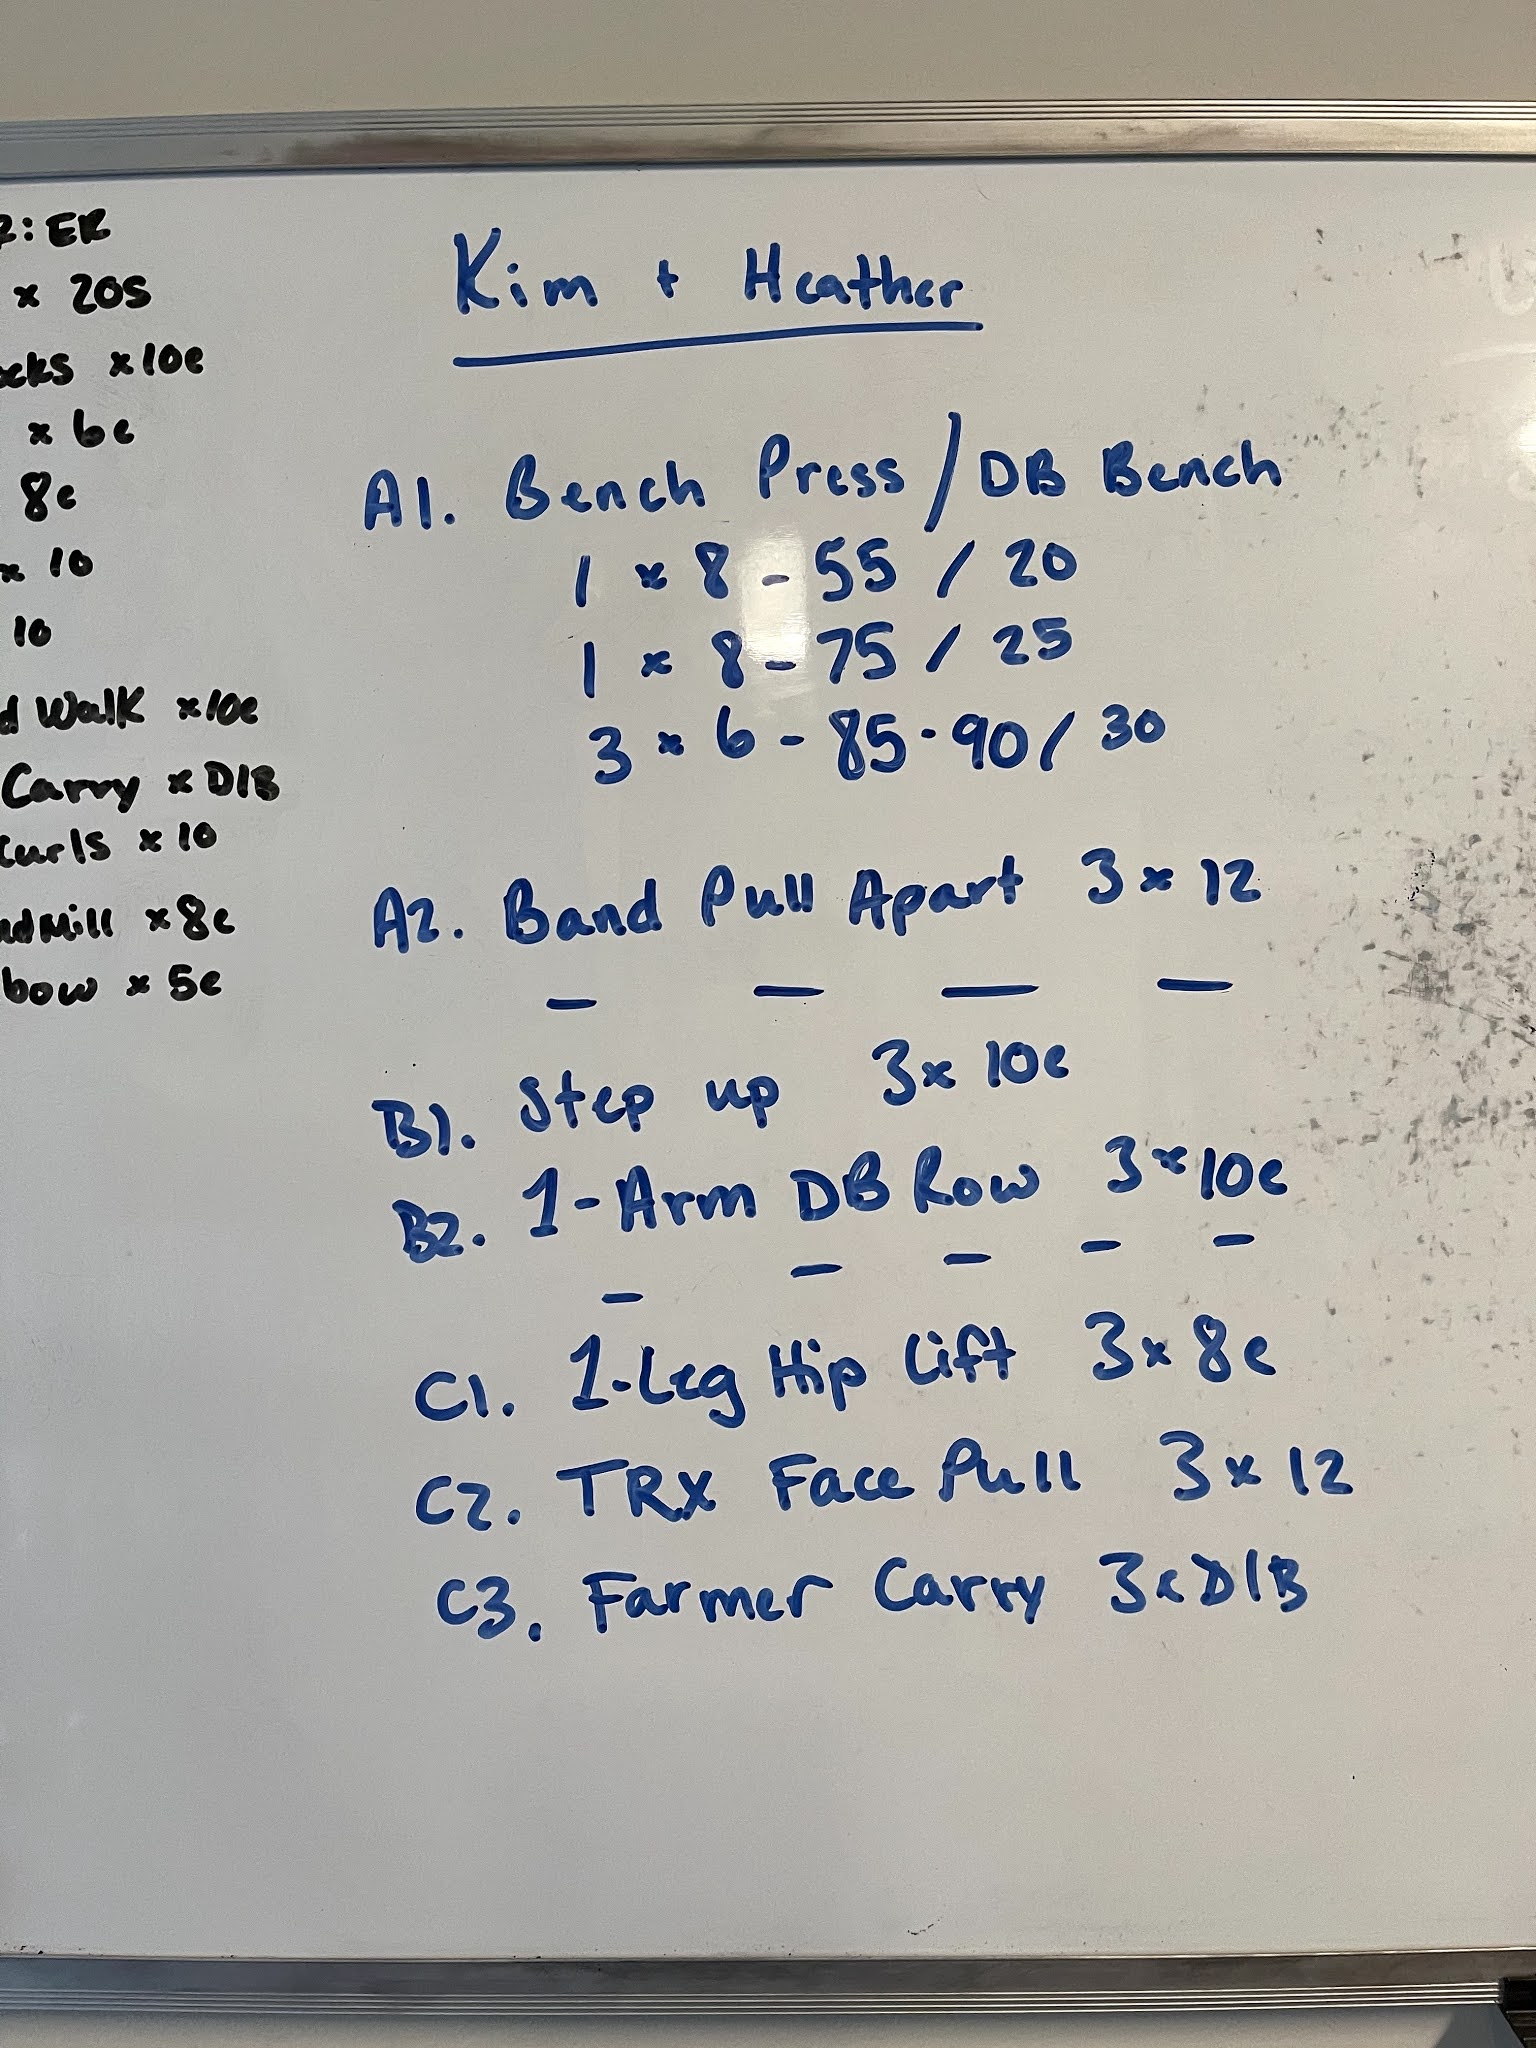 : ER
x 20s
x10e
x 6e
8e
x 10
10
Walk x10e
Carry x D/B
Curls x 10
x8e
bow x 5e
Kim + Heather
A1. Bench Press / DB Bench
1 x 8 - 55 / 20
1 x 8 - 75 / 25
3 x 6 - 85-90 / 30
A2. Band Pull Apart 3 x 12
B1. Step up 3x 10e
B2. 1-Arm DB Row 3 x 10e
C1. 1-Leg Hip Lift 3x 8e
C2. TRX Face Pull 3 x 12
C3. Farmer Carry 3x D/B